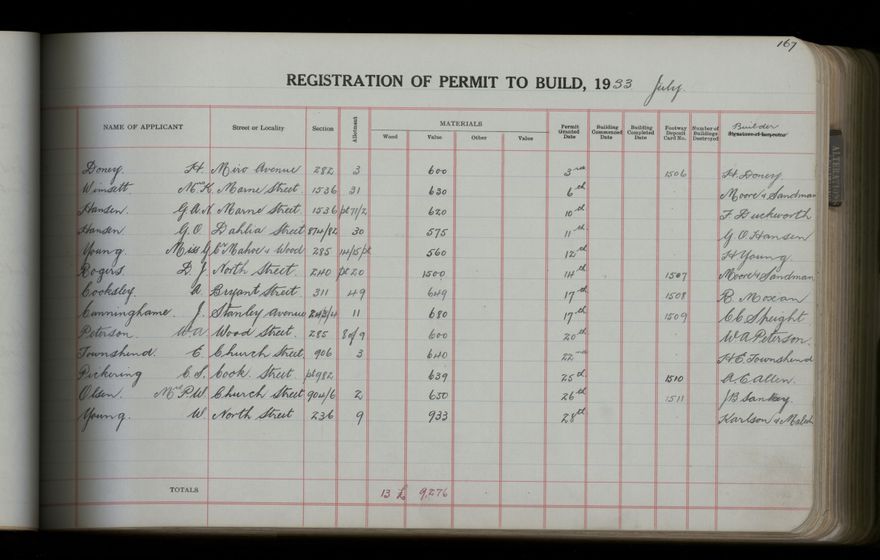 167
REGISTRATION OF PERMIT TO BUILD, 1933 July.
NAME OF APPLICANT Street or Locality Section Allotment MATERIALS Wood Value Other Value Permit Granted Date Building Commenced Date Building Completed Date Footway Deposit Card No. Number of Buildings Destroyed Builder Signature of Inspector
Doney. H. Miro Avenue 282 3 600 3rd 1506 H. Doney.
Wimsett. Mrs K. Marne Street. 1536 31 630 6th Moore & Sandman
Hansen. G.A.N. Marne Street. 1536 pt 71/2 620 10th F Duckworth
Hansen G.O. Dahlia Street 874/82 30 575 11th G O Hansen
Young. Miss G. Cr Mahoe & Wood 285 14/15/pt 560 12th H Young.
Rogers D. J. North Street. 240 pt 20 1500 14th 1507 Moore & Sandman
Cooksley. A. Bryant Street. 311 49 649 17th 1508 R. Moxan
Cunninghame. J. Stanley Avenue 243/4 11 680 17th 1509 C C Speight
Peterson. W.A. Wood Street. 285 8 of 9 600 20th W A Peterson.
Townshend. E. Church Street. 906 3 640 22nd H E Townshend
Pickering C.S. Cook Street. pt 982 639 25th 1510 A. E Allen.
Olsen. Mrs P.W. Church Street 904/6 2 650 26th 1511 J B Sankey.
Young. W. North Street 236 9 933 28th Karlson &
TOTALS 13 £ 9,276
ALTERATIONS